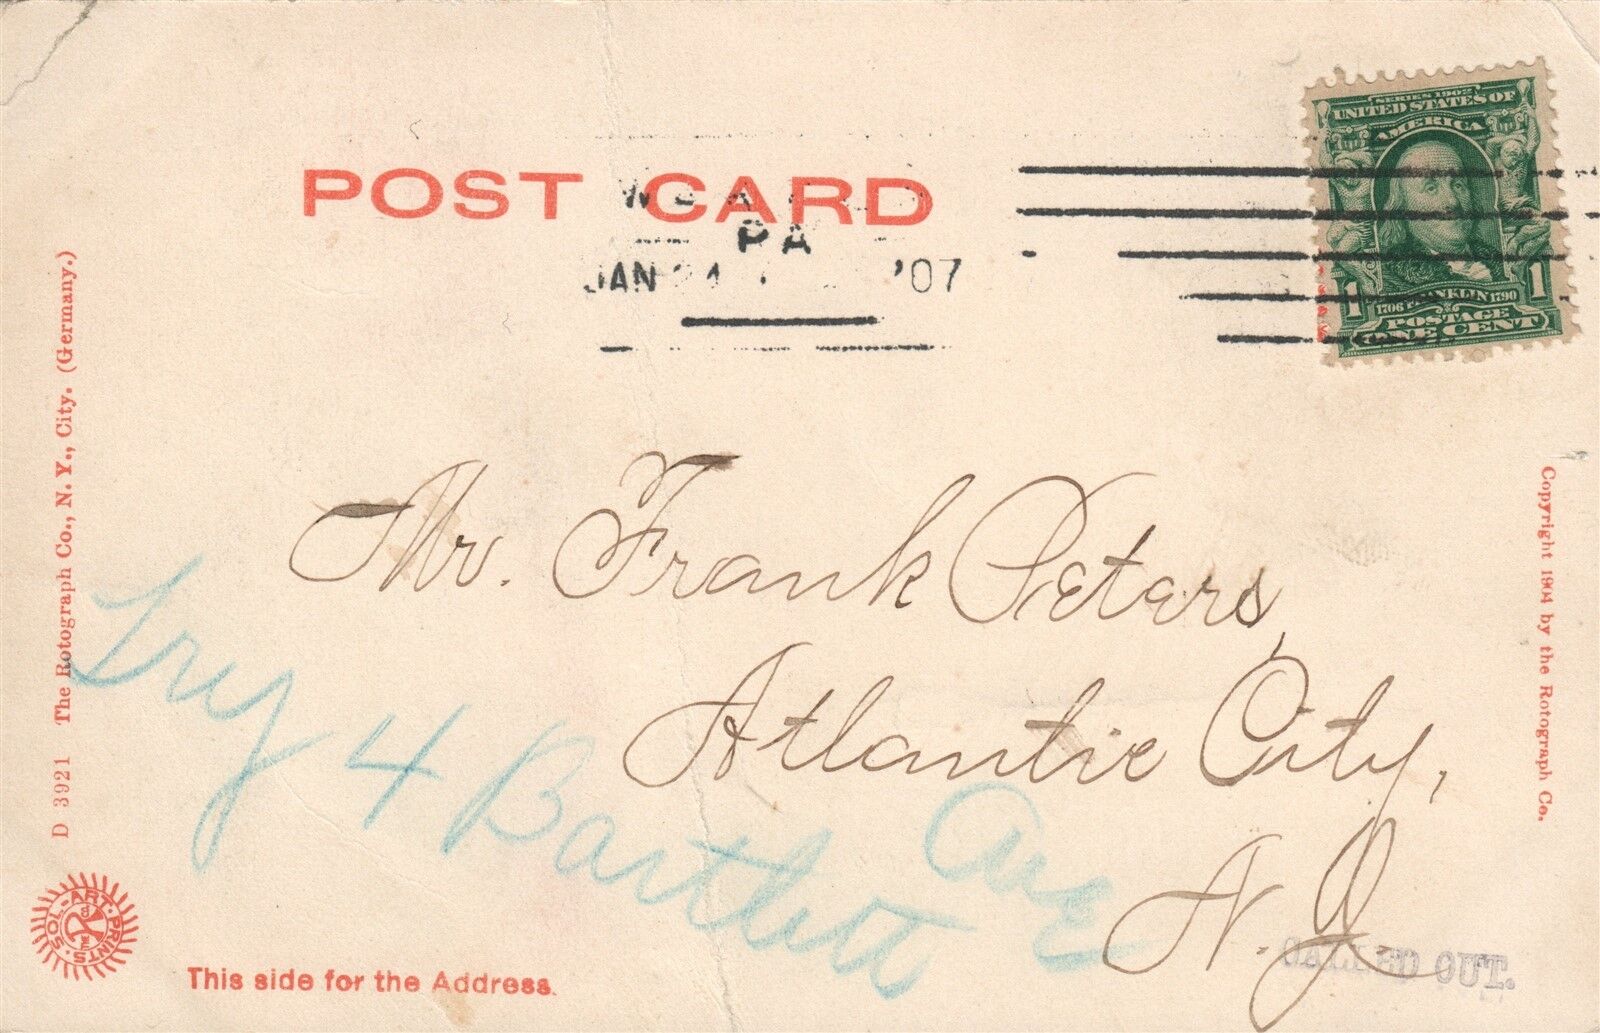 POST CARD
PA
JAN 24 '07
SERIES 1902
UNITED STATES OF
AMERICA
1 1706 FRANKLIN 1790 1
POSTAGE
ONE CENT
Mr. Frank Peters,
Atlantic City,
N.J.
Try 4 Bartlett Ave
CALLED OUT.
D 3921 The Rotograph Co., N. Y., City. (Germany.)
SOL-ART PRINTS
This side for the Address.
Copyright 1904 by the Rotograph Co.